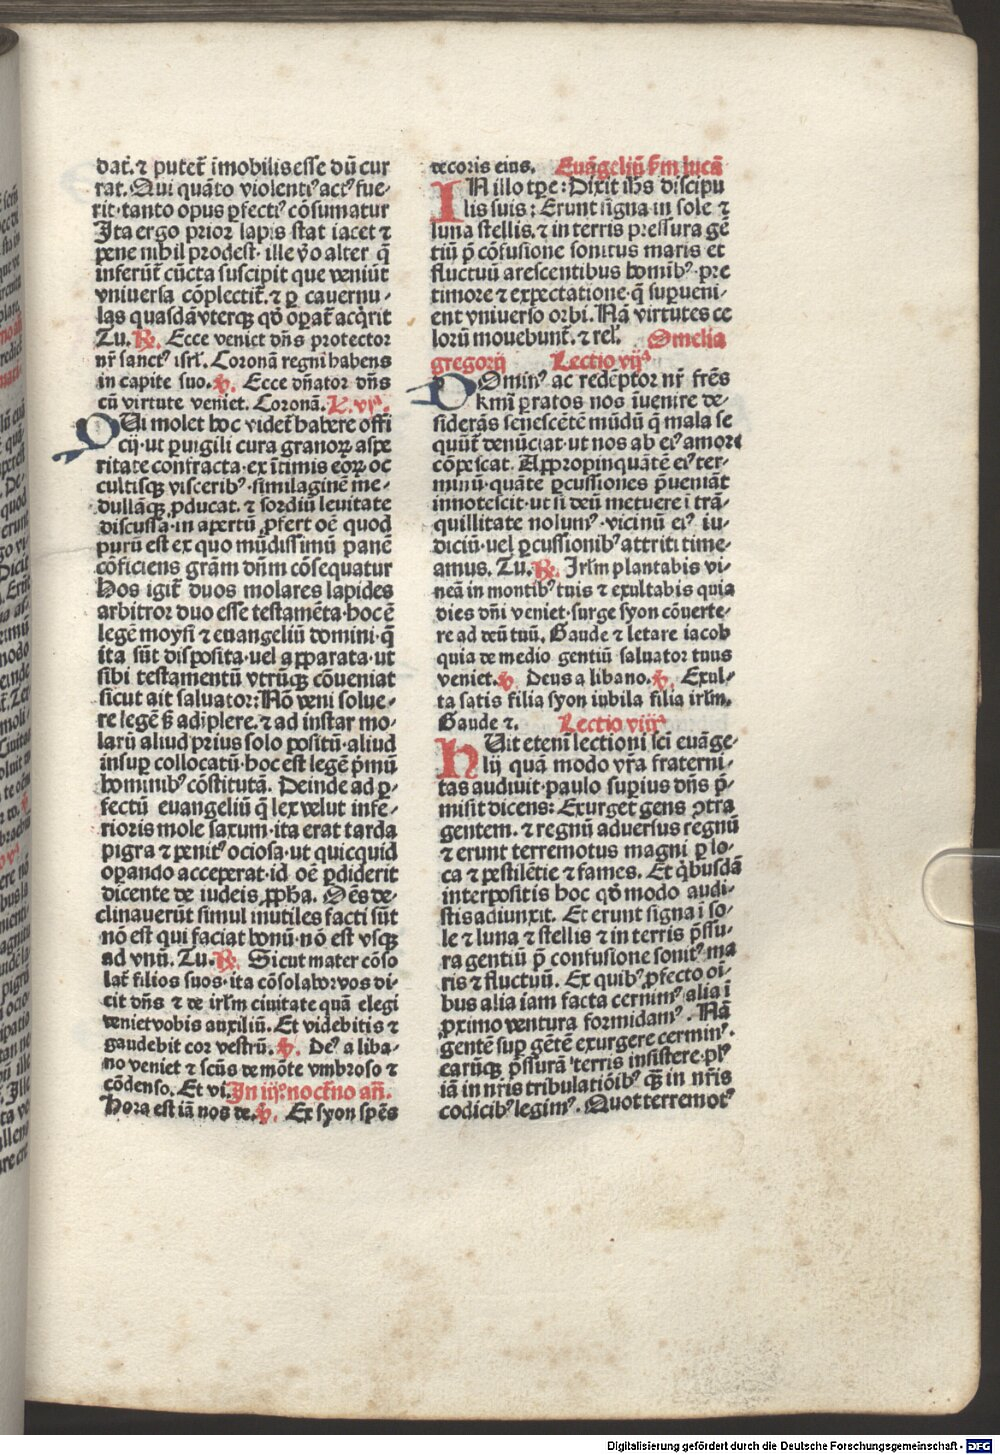 dat̄. ⁊ putet̄ īmobilis esse dū cur
rat. Qui quāto violentiꝰ actꝰ fue-
rit·tanto opus ꝑfectiꝰ cōsumatur
Ita ergo prior lapis stat iacet ⁊
pene nihil prodest· ille v̄o alter q̄
inferūt̄ cūcta suscipit que veniūt
vniuersa cōplectit̄. ⁊ ꝑ cauernu-
las quasdā vterqꝫ qd̄ oꝑat̄ acq̇rit
Tu. ℟. Ecce veniet dn̄s protector
nr̄ sanctꝰ isrl̄. Coronā regni habens
in capite suo. ℣. Ecce dn̄ator dn̄s
cū virtute veniet. Coronā. L. vjᵃ.
QUi molet hoc videt̄ habere offi
cij·ut ꝑuigili cura granoꝝ aspe
ritate confracta·ex ītimis eoꝝ oc
cultisqꝫ visceribꝰ·similaginē me-
dullāqꝫ ꝓducat. ⁊ sordiū leuitate
discussa·in apertū ꝓfert oē quod
purū est ex quo mūdissimū panē
cōficiens grām dn̄m cōsequatur
Hos igit̄ duos molares lapides
arbitror duo esse testamēta·hoc ē
legē moysi ⁊ euangeliū domini·q̄
ita sūt disposita·vel apparata·ut
sibi testamentū vtrūqꝫ cōueniat
sicut ait saluator: Nō veni solue-
re legē sꝫ adīplere. ⁊ ad instar mo-
larū aliud prius solo positū·aliud
insuꝑ collocatū·hoc est legē p̄mū
hominibꝰ cōstitutā. Deinde ad ꝑ-
fectū euangeliū q̄ lex velut infe-
rioris mole saxum·ita erat tarda
pigra ⁊ penitꝰ ociosa·ut quicquid
oꝑando acceperat·id oē ꝑdiderit
dicente de iudeis ꝓpha. Oēs de-
clinauerūt simul inutiles facti sūt
nō est qui faciat bonū·nō est vsqꝫ
ad vnū. Tu. ℟. Sicut mater cōso
lat̄ filios suos·ita cōsolabor vos di-
cit dn̄s ⁊ de irl̄m ciuitate quā elegi
veniet vobis auxiliū. Et videbitis ⁊
gaudebit cor vestrū. ℣. Deꝰ a liba-
no veniet ⁊ scūs de mōte vmbroso ⁊
cōdenso. Et vi. In iijᵒ. noct̄no an̄.
Hora est iā nos de. ℣. Ex syon spēs
decoris eius. Euāgeliū sm̄ lucā
IN illo tꝑe: Dixit ihs discipu
lis suis: Erunt signa in sole ⁊
luna stellis. ⁊ in terris pressura gē
tiū p̄ cōfusione sonitus maris et
fluctuū arescentibus homībꝰ·pre
timore ⁊ expectatione·q̄ suꝑueni-
ent vniuerso orbi. Nā virtutes ce
lorū mouebunt̄. ⁊ rel̄. Omelia
gregorij Lectio vijᵃ
DOminꝰ ac redēptor nr̄ frēs
km̄i ꝑratos nos īuenire de-
siderās senescētē mūdū q̄ mala se
quūt̄ denūciat·ut nos ab eiꝰ amore
cōpescat. Appropinquātē eiꝰ ter-
minū·quāte ꝑcussiones p̄ueniāt
innotescit·ut si deū metuere ī trā-
quillitate nolumꝰ·vicinū eiꝰ iu-
diciū·uel ꝑcussionibꝰ attriti time-
amus. Tu. ℟. Irl̄m plantabis vi-
neā in montibꝰ tuis ⁊ exultabis quia
dies dn̄i veniet·surge syon cōuerte-
re ad deū tuū. Gaude ⁊ letare iacob
quia de medio gentiū saluator tuus
veniet. ℣. Deus a libano. ℣. Exul-
ta satis filia syon iubila filia irl̄m.
Gaude ⁊. Lectio viijᵃ
hUit etenī lectioni scī euāge-
lij quā modo vr̄a fraterni-
tas audiuit·paulo suꝑius dn̄s p̄-
misit dicens: Exurget gens ꝯtra
gentem. ⁊ regnū aduersus regnū
⁊ erunt terremotus magni ꝑ lo-
ca ⁊ pestilētie ⁊ fames. Et q̇busdā
interpositis hoc qd̄ modo audi-
stis adiunxit. Et erunt signa ī so-
le ⁊ luna ⁊ stellis ⁊ in terris p̄ssu-
ra gentiū p̄ confusione sonitꝰ ma
ris ⁊ fluctuū. Ex quibꝰ ꝓfecto oī
bus alia iam facta cernimꝰ alia ī
ꝓximo ventura formidamꝰ. Nā
gentē suꝑ gētē exurgere cerminꝰ.
earūqꝫ p̄ssurā terris insistere·plꝰ
iā in nr̄is tribulatiōibꝰ qꝫ̄ in nr̄is
codicibꝰ legimꝰ. Quot terremotꝰ
Digitalisierung gefördert durch die Deutsche Forschungsgemeinschaft - DFG